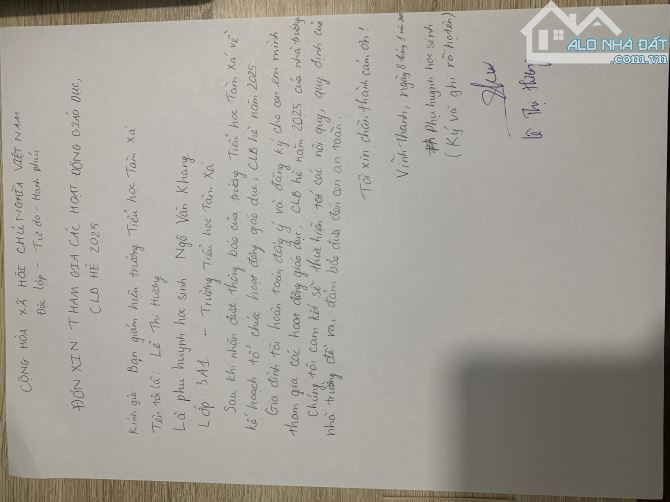 CỘNG HÒA XÃ HỘI CHỦ NGHĨA VIỆT NAM
Độc lập - Tự do - Hạnh phúc
ĐƠN XIN THAM GIA CÁC HOẠT ĐỘNG GIÁO DỤC,
CLB HÈ 2025
Kính gửi: Ban giám hiệu trường Tiểu học Tàn Xá
Tên tôi là: Lê Thị Hương
Là phụ huynh học sinh Ngô Văn Khang
Lớp: 3A1 - Trường Tiểu học Tàn Xá
Sau khi nhận được thông báo của trường Tiểu học Tàm Xá về
kế hoạch tổ chức hoạt động giáo dục, CLB hè năm 2025.
Gia đình tôi hoàn toàn đồng ý và đăng ký cho con em mình
tham gia các hoạt động giáo dục, CLB hè năm 2025 của nhà trường
Chúng tôi cam kết sẽ thực hiện tốt các nội quy, quy định của
nhà trường đề ra, đảm bảo đưa đón con an toàn.
Tôi xin chân thành cảm ơn!
Vĩnh Thanh, ngày 8 tháng 1 năm
Phụ huynh học sinh
(Ký và ghi rõ họ tên)
Lê Thị Hương
ALO NHÀ ĐẤT
Alonhadat.com.vn